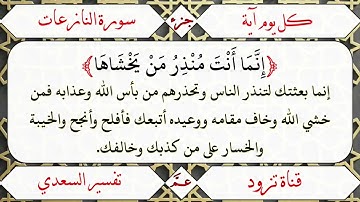 كل يوم آية
جزء
سورة النازعات
﴿إِنَّمَا أَنْتَ مُنْذِرُ مَنْ يَخْشَاهَا﴾
إنما بعثتك لتنذر الناس وتحذرهم من بأس الله وعذابه فمن
خشي الله وخاف مقامه ووعيده أتبعك فأفلح وأنجح والخيبة
والخسار على من كذبك وخالفك.
قناة تزود
عمّ
تفسير السعدي